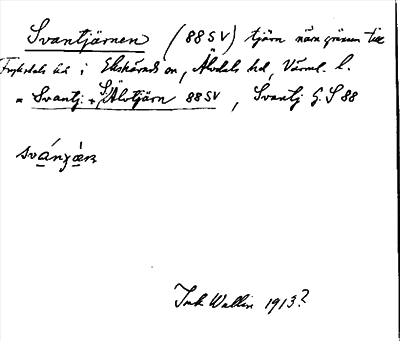 Svantjärnen (88 SV) tjärn nära gränsen till
Fryksdals hd i Ekshärads sn, Älvdals hd, Värml. l.
= Svantj. + S. Älvtjärn 88 SV, Svantj G.S 88
Ink Wallin 1913?